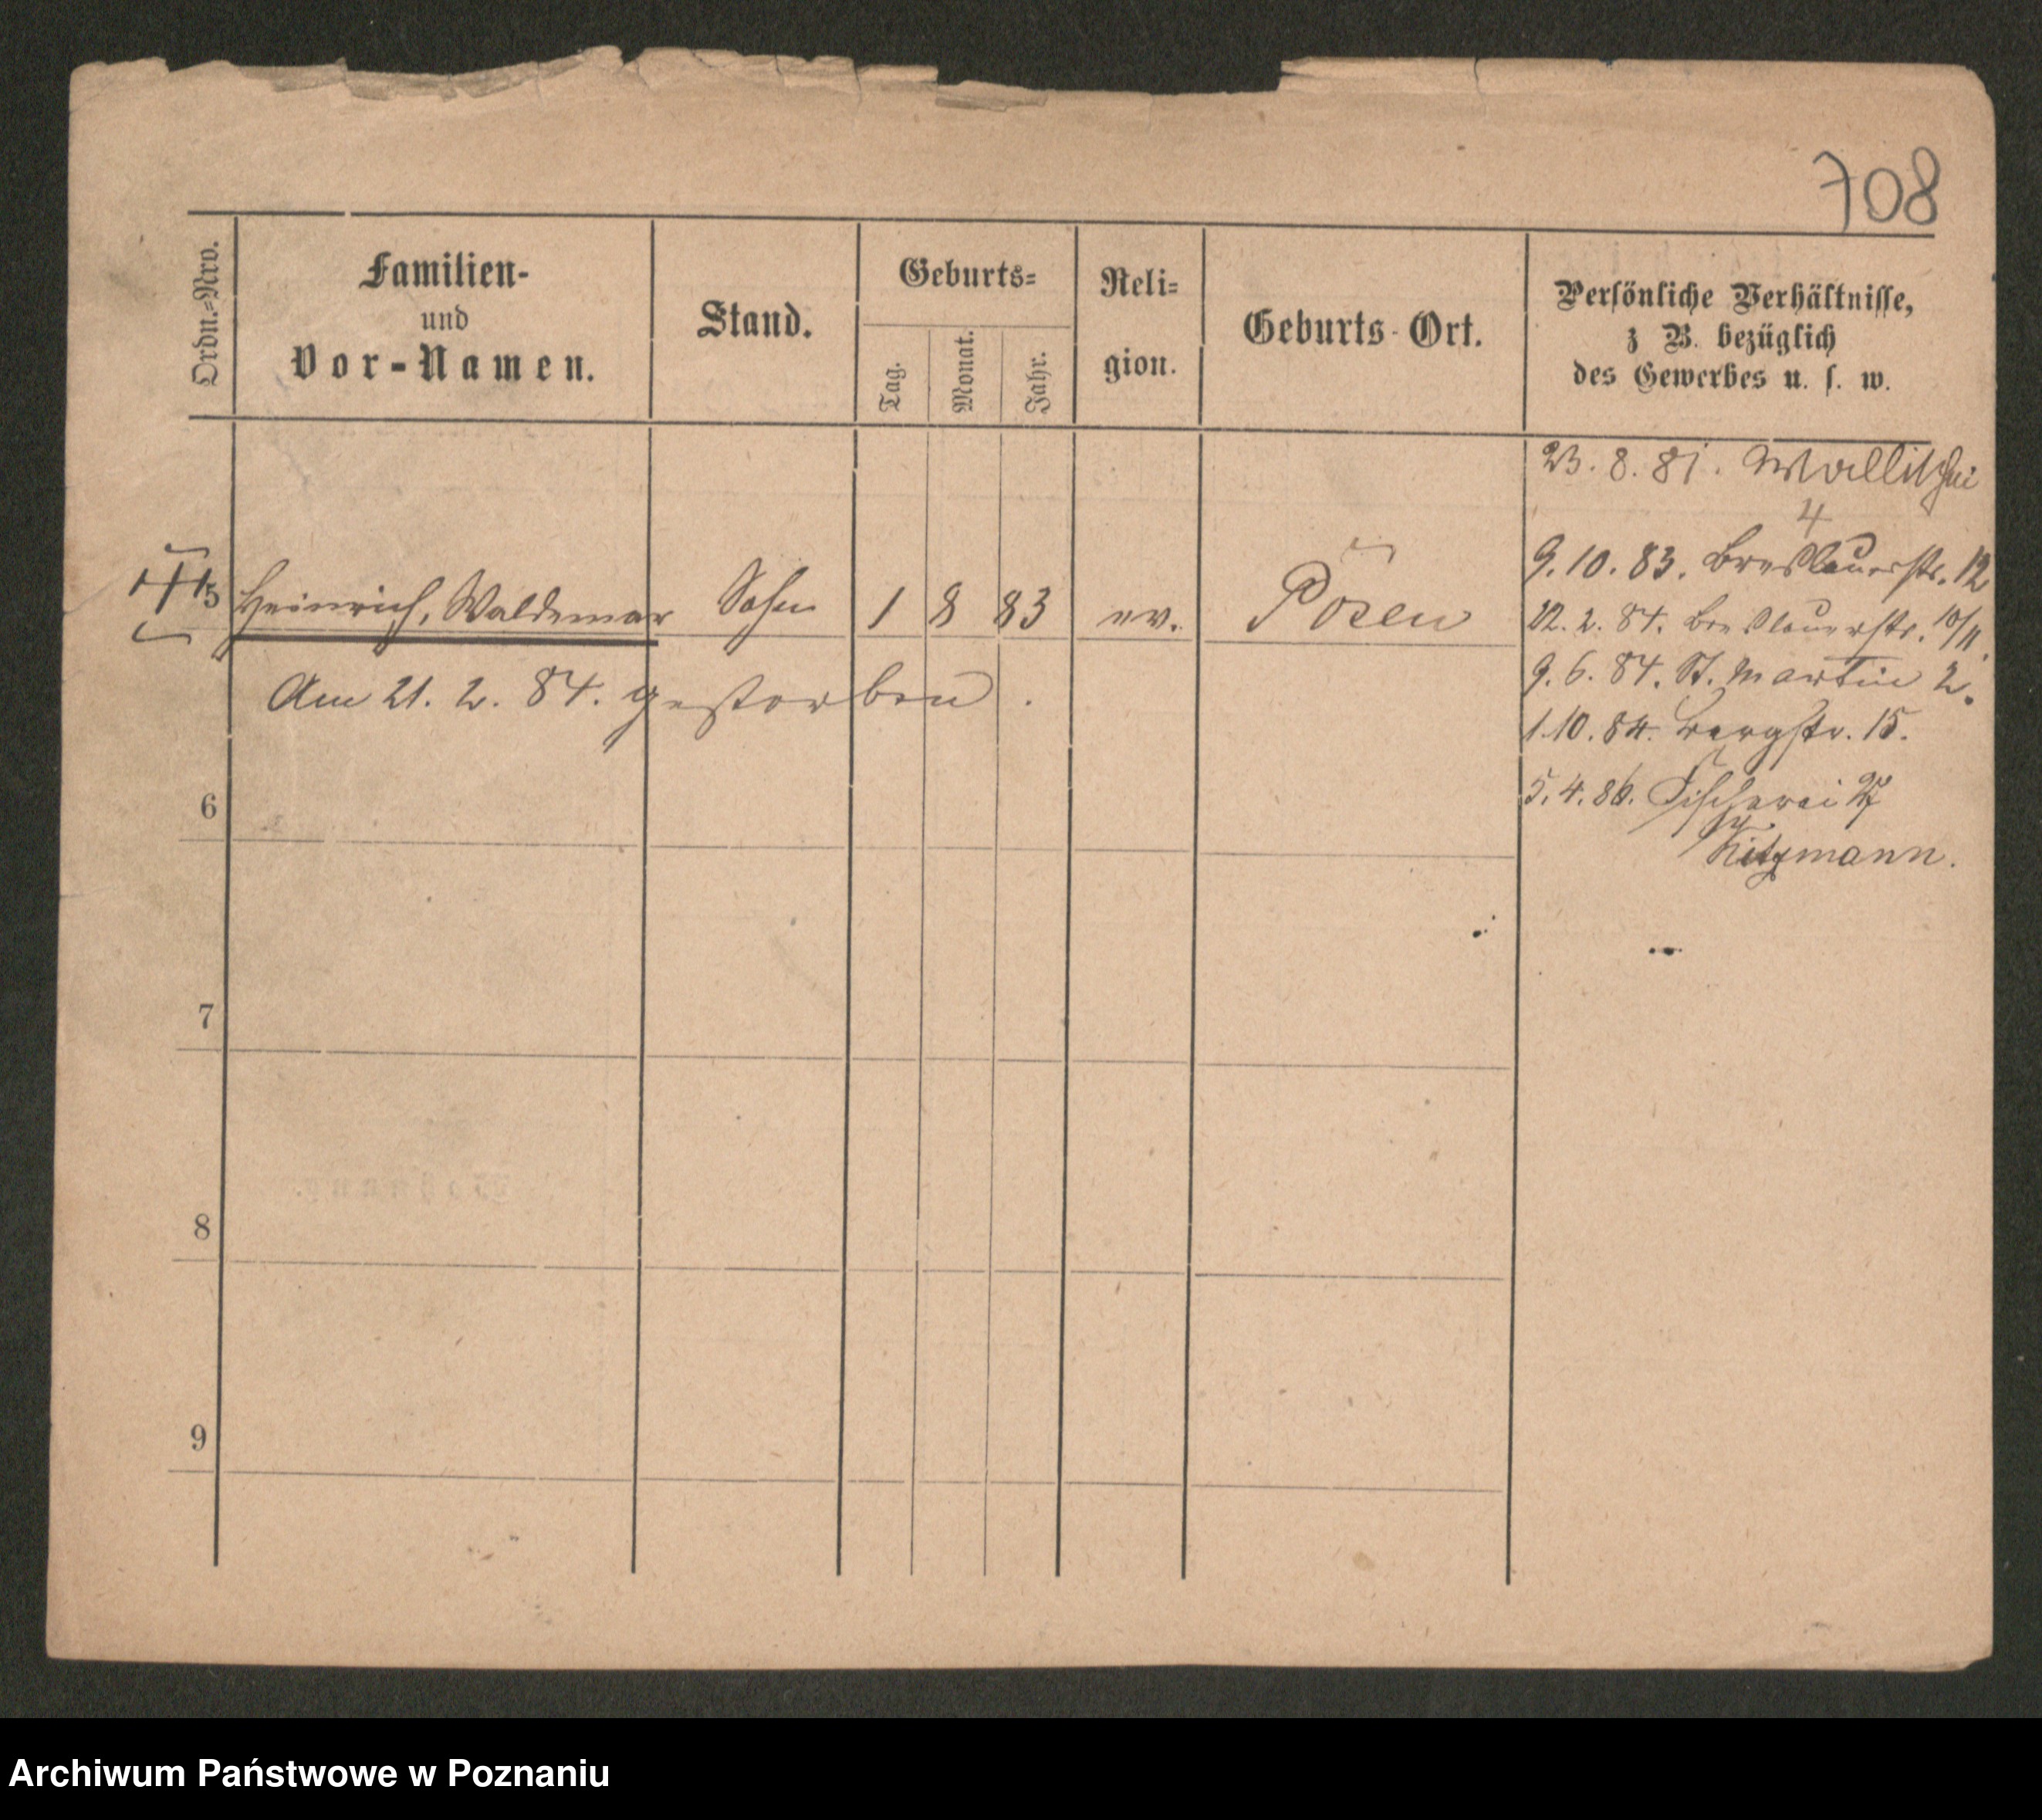 708
Ordn.-Nro.
Familien-
und
Vor-Namen.
Stand.
Geburts-
Tag.
Monat.
Jahr.
Reli-
gion.
Geburts-Ort.
Persönliche Verhältnisse,
z B. bezüglich
des Gewerbes u. s. w.
23. 8. 81. Wallischei
4
9. 10. 83. Breslauerstr. 12
5 Heinrich, Waldemar Sohn 1 8 83 ev. Posen
12. 2. 84. Breslauerstr. 10/11.
9. 6. 84. St. Martin 2.
Am 21. 2. 84. gestorben.
1.10. 84. Bergstr. 15.
5. 4. 86. Fischerei 27
6
Kitzmann.
7
8
9
Archiwum Państwowe w Poznaniu